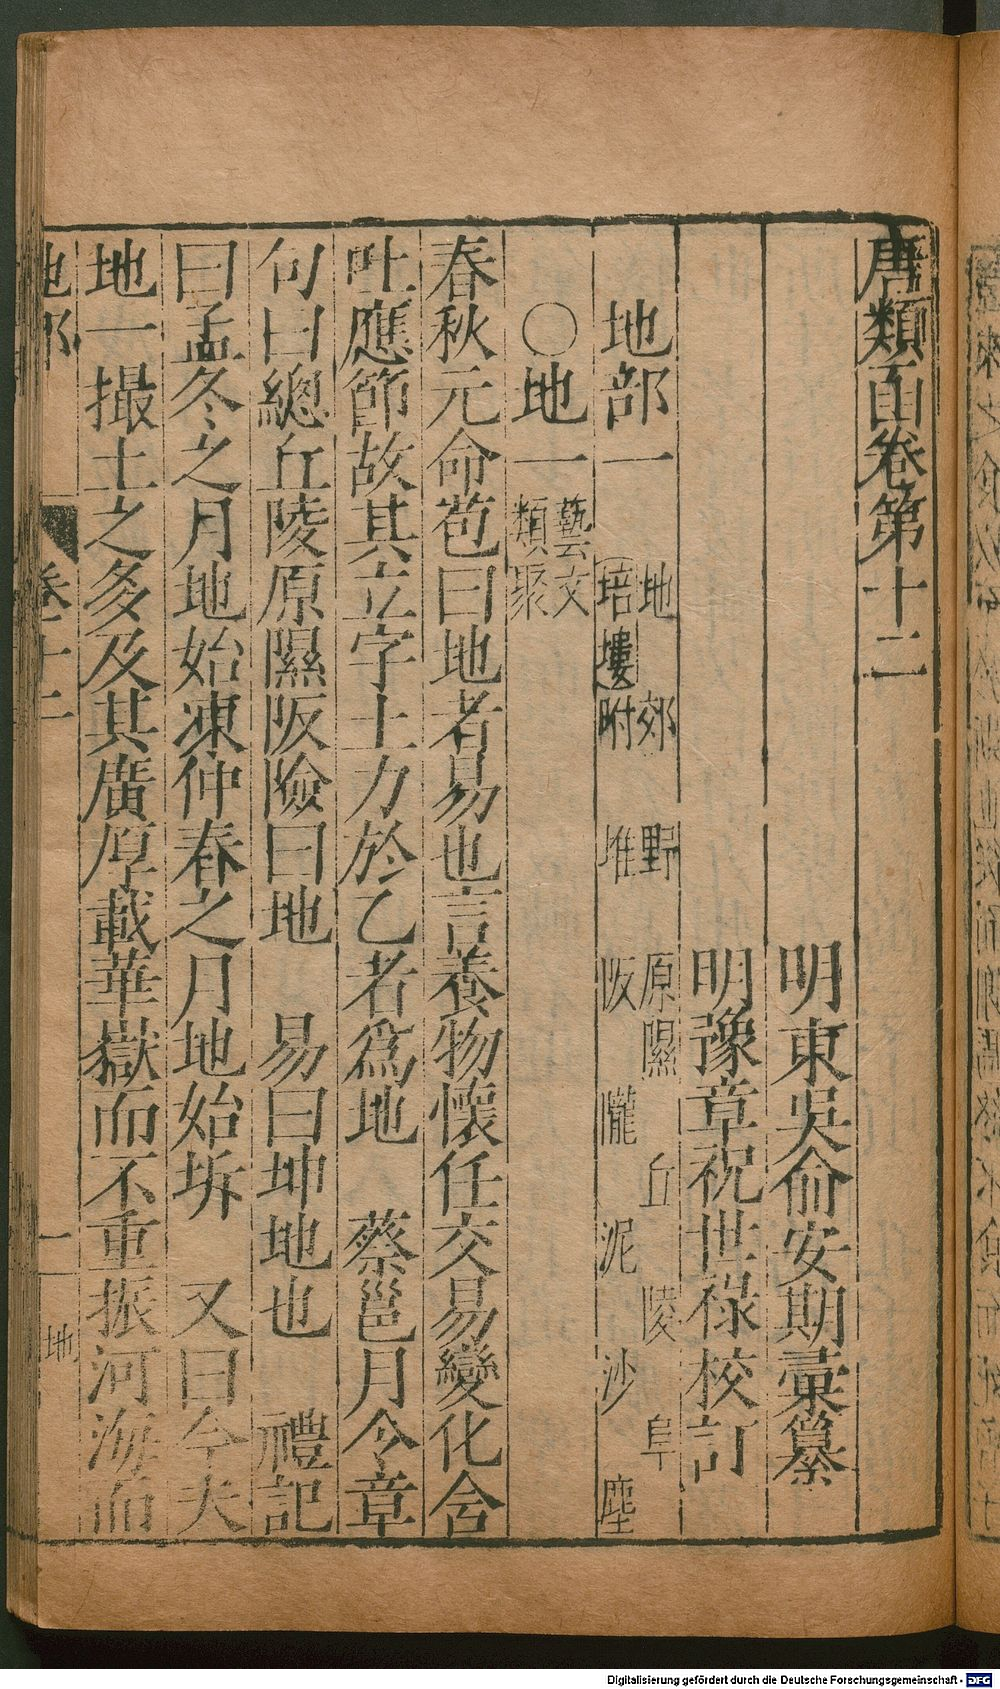 唐類函卷第十二
明東吳俞安期彙纂
明豫章祝世祿校訂
地部一
地 郊 野 原隰 丘 陵 阜
培塿附 堆 阪 隴 泥 沙 塵
〇地一
藝文
類聚
春秋元命苞曰地者易也言養物懷任交易變化含
吐應節故其立字土力於乙者爲地 蔡邕月令章
句曰總丘陵原隰阪險曰地 易曰坤地也 禮記
曰孟冬之月地始凍仲春之月地始坼 又曰今夫
地一撮土之多及其廣厚載華嶽而不重振河海而
地部 卷十二 一 地
Digitalisierung gefördert durch die Deutsche Forschungsgemeinschaft - DFG